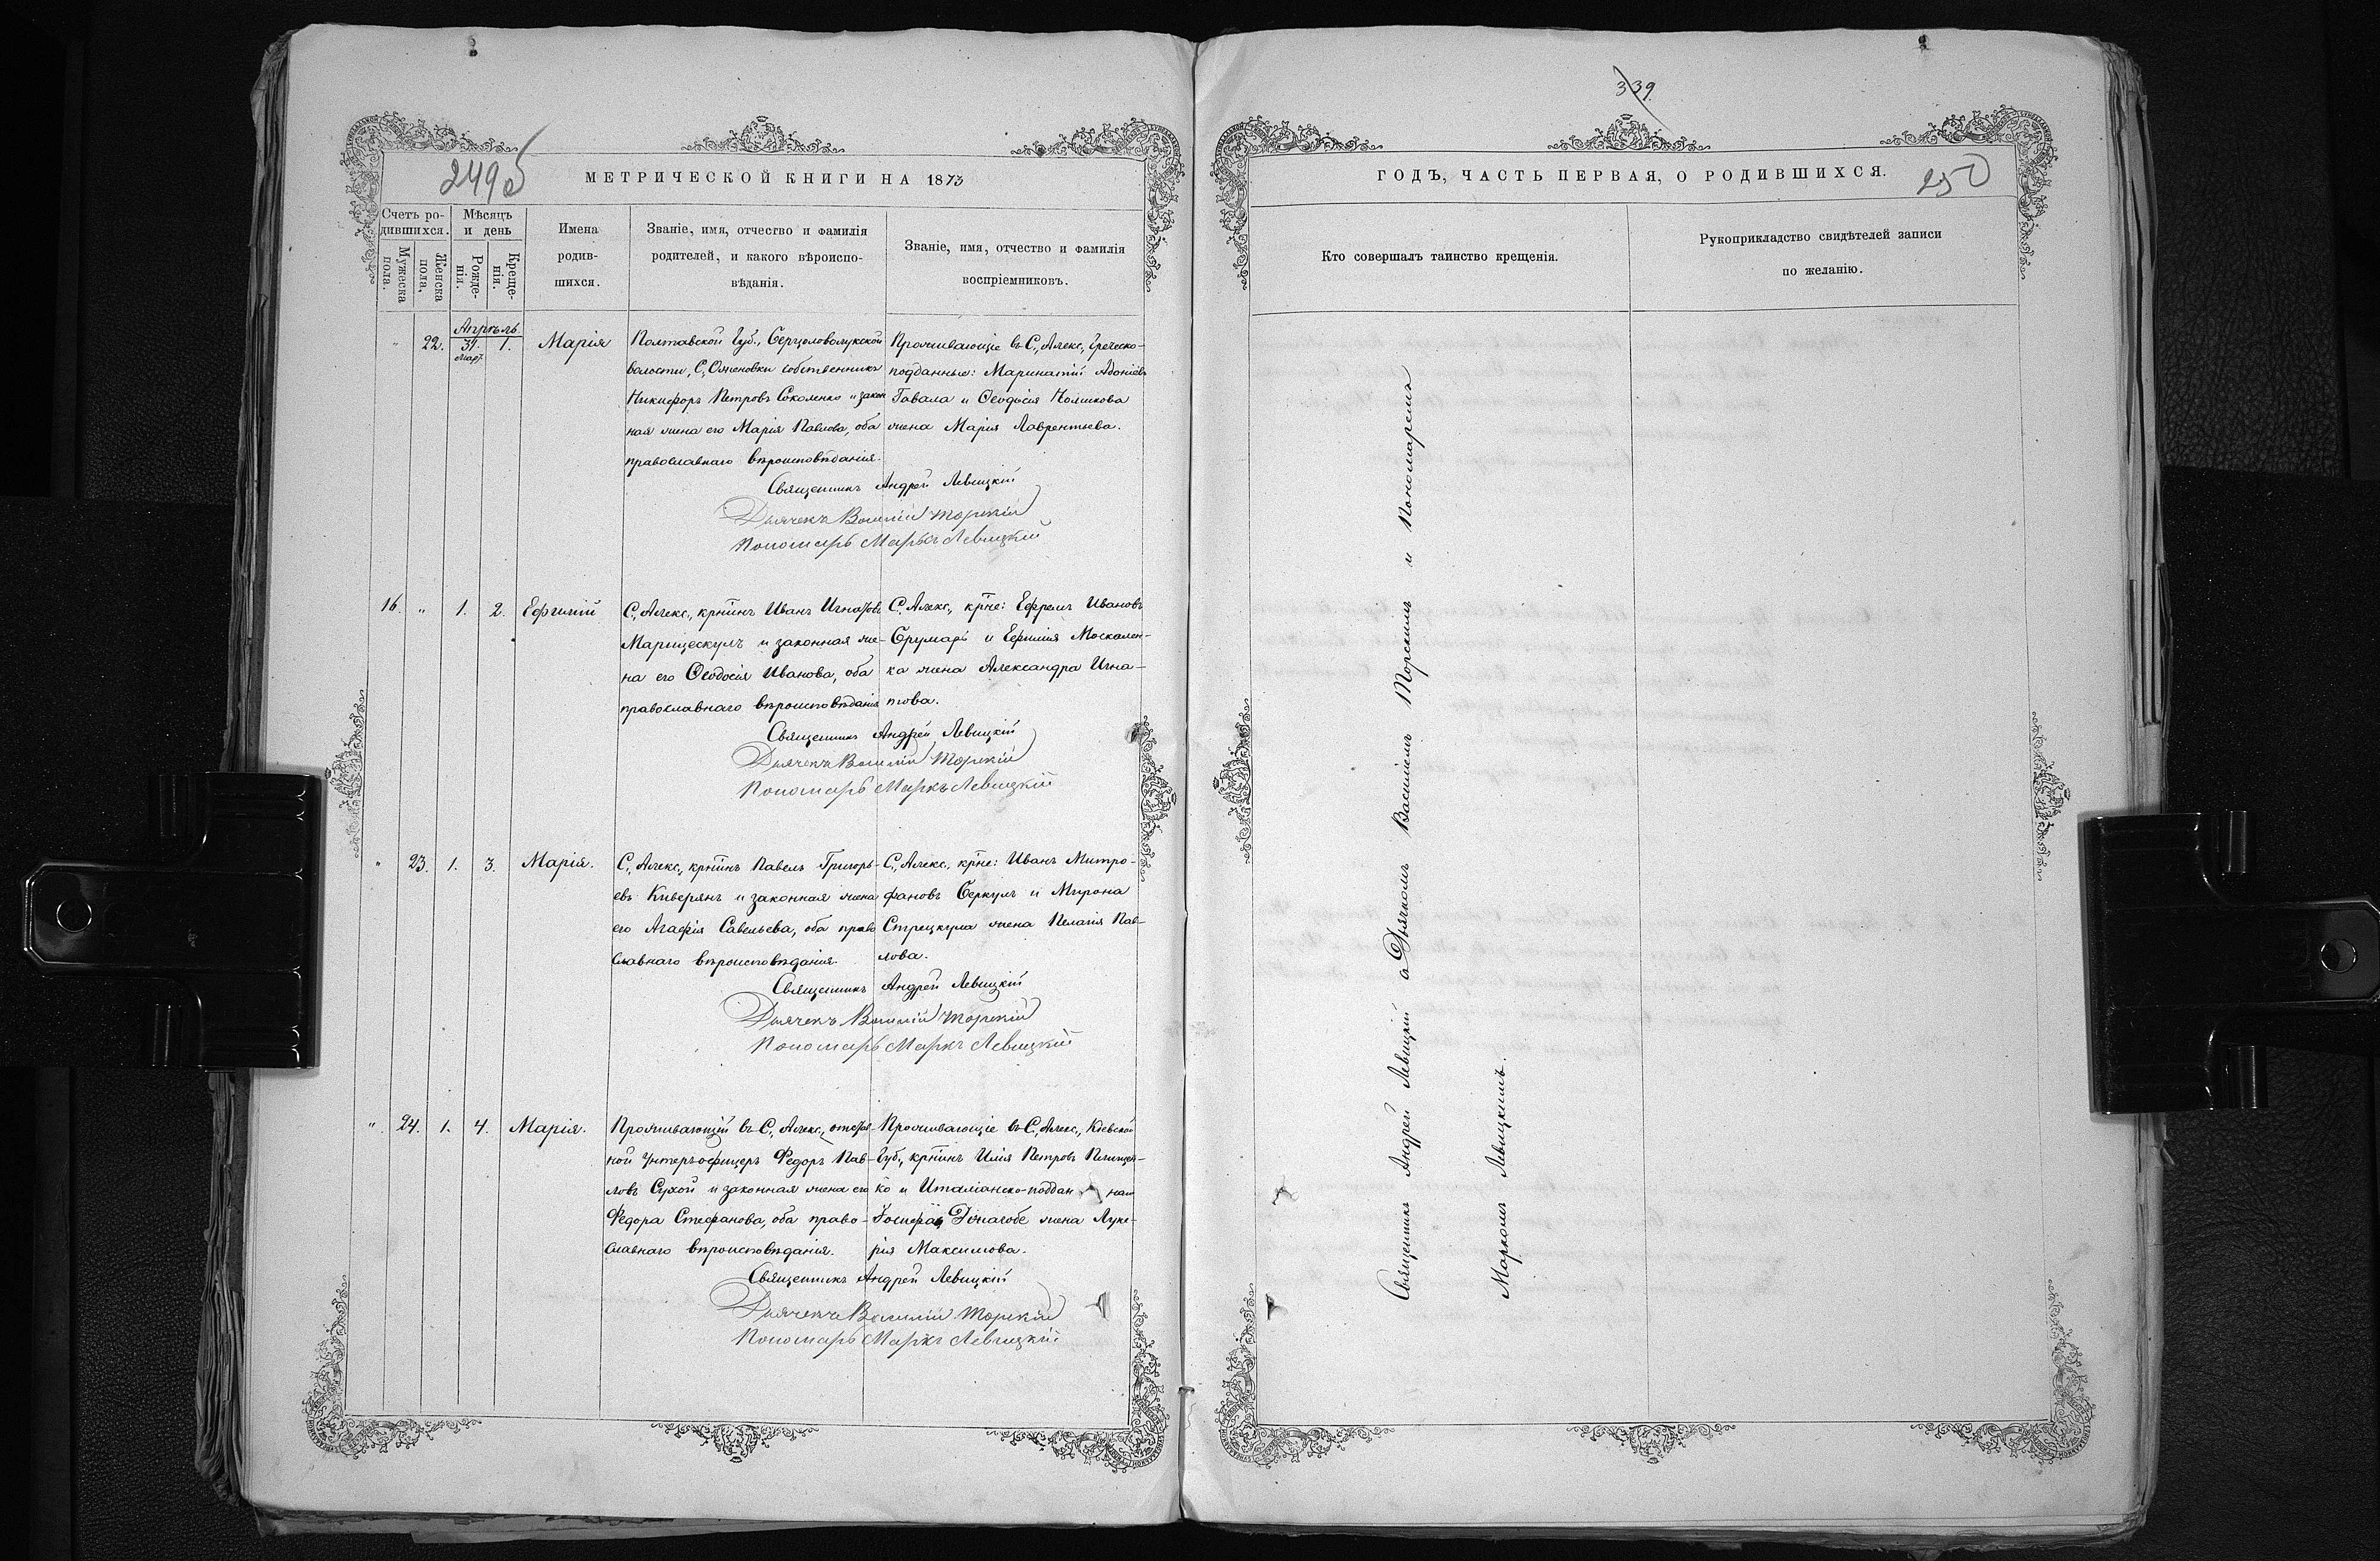 339
249б
МЕТРИЧЕСКОЙ КНИГИ НА 1873
ГОДЪ, ЧАСТЬ ПЕРВАЯ, О РОДИВШИХСЯ.
250
Счетъ ро-
дившихся.
Мужеска
пола.
Женска
пола.
Мѣсяцъ
и день
Рожде-
нія.
Креще-
нія.
Имена
родив-
шихся.
Званіе, имя, отчество и фамилія
родителей, и какого вѣроиспо-
вѣданія.
Званіе, имя, отчество и фамилія
воспріемниковъ.
Кто совершалъ таинство крещенія.
Рукоприкладство свидѣтелей записи
по желанію.
Апрѣль.
" 22. 31. март. 1. Марія
Полтавской Губ.,
волости, С, собственникъ
Никифоръ Петровъ Соколенко и закон
ная жена его Марія Павлова, оба
православнаго вѣроисповѣданія.
Проживающіе въ С, Алекс, Греческо-
подданные:
Гавала и Ѳеодосія
жена Марія Лаврентьева.
Священникъ Андрей Левицкій
Дьячекъ Василій Торскій
Пономарь Маркъ Левицкій
16. " 1. 2. Ефимій
С, Алекс, крѣінъ Иванъ Игнатовъ
и законная же-
на его Ѳеодосія Иванова, оба
православнаго вѣроисповѣданія
С, Алекс, крѣне: Ефремъ Ивановъ
и Москален-
ка жена Александра Игна-
това.
Священникъ Андрей Левицкій
Дьячекъ Василій Торскій
Пономарь Маркъ Левицкій
" 23. 1. 3. Марія.
С, Алекс, крѣінъ Павелъ Григорь-
евъ Киверянъ и законная жена
его Агафія Савельева, оба право
славнаго вѣроисповѣданія.
С, Алекс, крѣне: Иванъ Митро-
фановъ и Мирона
жена Пелагія Пав-
лова.
Священникъ Андрей Левицкій
Дьячекъ Василій Торскій
Пономарь Маркъ Левицкій
" 24. 1. 4. Марія.
Проживающій въ С, Алекс,
ной Унтеръ-офицеръ Федоръ Пав-
ловъ Сухой и законная жена его
Федора Стефанова, оба право-
славнаго вѣроисповѣданія.
Проживающіе въ С, Алекс, Кіевской
Губ, крѣінъ Илія Петровъ
ко и Италіанско-поддан
жена Луке-
рія Максимова.
Священникъ Андрей Левицкій
Дьячекъ Василій Торскій
Пономарь Маркъ Левицкій
Священникъ Андрей Левицкій с Дьячкомъ Василіемъ Торскимъ и Пономаремъ
Маркомъ Левицкимъ.